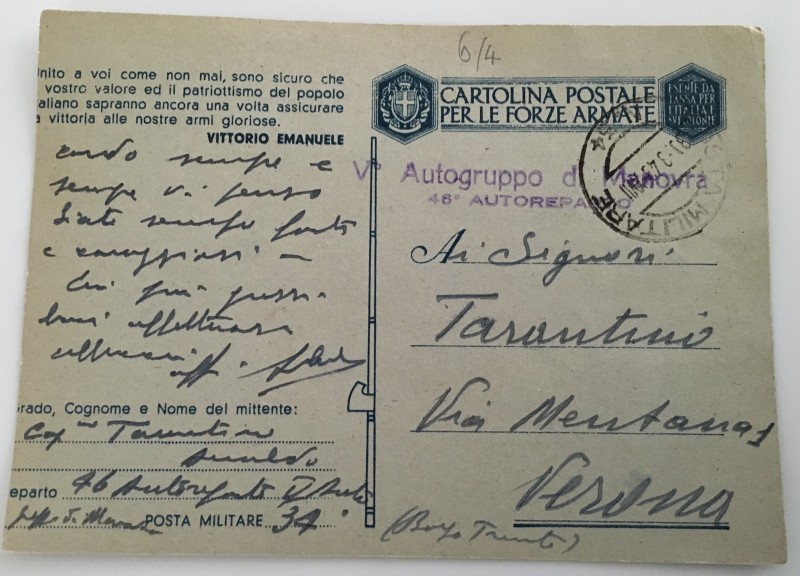 6/4
Unito a voi come non mai, sono sicuro che
vostro valore ed il patriottismo del popolo
italiano sapranno ancora una volta assicurare
a vittoria alle nostre armi gloriose.
VITTORIO EMANUELE
sempre e
sempre vi penso
Siate sempre forti
e coraggiosi -
baci affettuosi
aff.
Grado, Cognome e Nome del mittente:
Tarantino
Arnaldo
eparto 46 Autoreparto V Auto
POSTA MILITARE 34
CARTOLINA POSTALE
PER LE FORZE ARMATE
ESENTE DA
TASSA PER
L'ITALIA E
SUE COLONIE
POSTA MILITARE
V° Autogruppo di Manovra
46° AUTOREPARTO
Ai Signori
Tarantino
Via Mentana 1
Verona
(Borgo Trento)